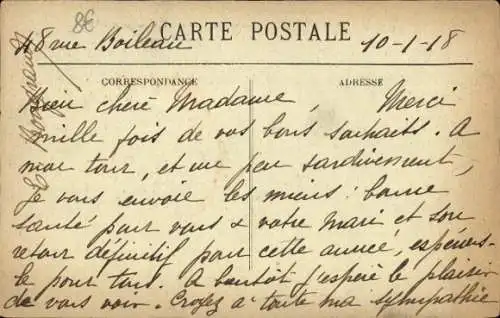 8€
CARTE POSTALE
48 rue Boileau 10-1-18
CORRESPONDANCE ADRESSE
Bien chère Madame, Merci
mille fois de vos bons souhaits. A
mon tour, et un peu tardivement,
je vous envoie les miens : bonne
santé pour vous & votre Mari et son
retour définitif pour cette année, espérons-
le pour tous. A bientôt j'espère le plaisir
de vous voir. Croyez à toute ma sympathie